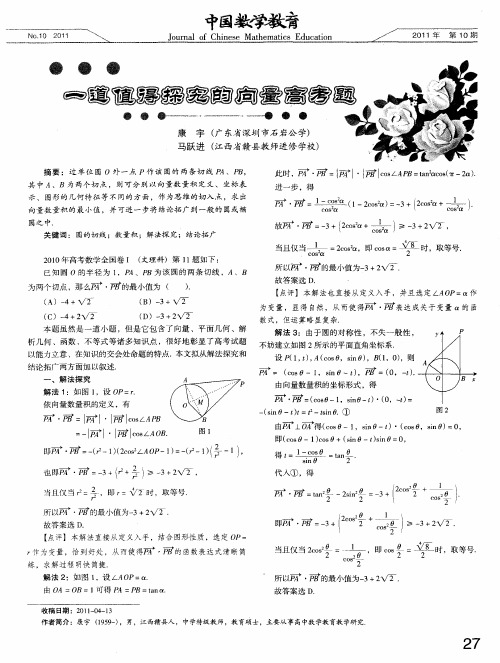 中国数学教育
No.10 2011
Journal of Chinese Mathematics Education
2011年 第10期
一道值得探究的向量高考题
康 宇（广东省深圳市石岩公学）
马跃进（江西省赣县教师进修学校）
摘要：过单位圆 O 外一点 P 作该圆的两条切线 PA、PB，
其中 A、B 为两个切点，则可分别以向量数量积定义、坐标表
示、图形的几何特征等不同的方面，作为思维的切入点，求出
向量数量积的最小值，并可进一步将结论拓广到一般的圆或椭
圆之中.
关键词：圆的切线；数量积；解法探究；结论拓广
2010年高考数学全国卷Ⅰ（文理科）第11题如下：
已知圆 O 的半径为 1，PA、PB 为该圆的两条切线，A、B
为两个切点，那么PA·PB的最小值为（ ）.
（A）-4+√2 （B）-3+√2
（C）-4+2√2 （D）-3+2√2
本题虽然是一道小题，但是它包含了向量、平面几何、解
析几何、函数、不等式等诸多知识点，很好地彰显了高考试题
以能力立意，在知识的交会处命题的特点. 本文拟从解法探究和
结论拓广两方面加以叙述.
一、解法探究
解法 1：如图 1，设 OP=r.
依向量数量积的定义，有
PA·PB=|PA|·|PB|cos∠APB
=-|PA|·|PB|cos∠AOB.
A
P
O
M
B
图 1
即PA·PB=-(r²-1)(2cos²∠AOP-1)=-(r²-1)(2/r²-1)，
也即PA·PB=-3+(r²+2/r²)≥-3+2√2，
当且仅当 r²=2/r²，即 r=⁴√2 时，取等号.
所以PA·PB的最小值为-3+2√2.
故答案选 D.
【点评】本解法直接从定义入手，结合图形性质，选定 OP=
r 作为变量，恰到好处，从而使得PA·PB的函数表达式清晰简
练，求解过程明快简捷.
解法 2：如图 1，设∠AOP=α.
由 OA=OB=1 可得 PA=PB=tanα
此时，PA·PB=|PA|·|PB|cos∠APB=tan²αcos(π-2α).
进一步，得
PA·PB=(1-cos²α)/cos²α (1-2cos²α)=-3+(2cos²α+1/cos²α).
故PA·PB=-3+(2cos²α+1/cos²α)≥-3+2√2，
当且仅当 1/cos²α=2cos²α，即 cosα=⁴√8/2 时，取等号.
所以PA·PB的最小值为-3+2√2.
故答案选 D.
【点评】本解法也直接从定义入手，并且选定∠AOP=α作
为变量，显得自然，从而使得PA·PB表达成关于变量 α 的函
数式，但运算略显复杂.
解法 3：由于圆的对称性，不失一般性，
不妨建立如图 2 所示的平面直角坐标系.
设 P(1, t), A(cosθ, sinθ), B(1, 0)，则
PA=(cosθ-1, sinθ-t), PB=(0, -t).
由向量数量积的坐标形式，得
y
P
A
O
B
x
图 2
PA·PB=(cosθ-1, sinθ-t)·(0, -t)=
-(sinθ-t)t=t²-tsinθ. ①
由PA⊥OA得(cosθ-1, sinθ-t)·(cosθ, sinθ)=0，
即(cosθ-1)cosθ+(sinθ-t)sinθ=0，
得 t=(1-cosθ)/sinθ=tan θ/2.
代入①，得
PA·PB=tan²θ/2-2sin²θ/2=-3+(2cos²θ/2+1/cos²θ/2).
即PA·PB=-3+(2cos²θ/2+1/cos²θ/2)≥-3+2√2.
当且仅当 2cos²θ/2=1/cos²θ/2，即 cos θ/2=⁴√8/2 时，取等号.
所以PA·PB的最小值为-3+2√2.
故答案选 D.
收稿日期：2011-04-13
作者简介：康宇（1959-），男，江西赣县人，中学特级教师，教育硕士，主要从事高中数学教育教学研究.
27